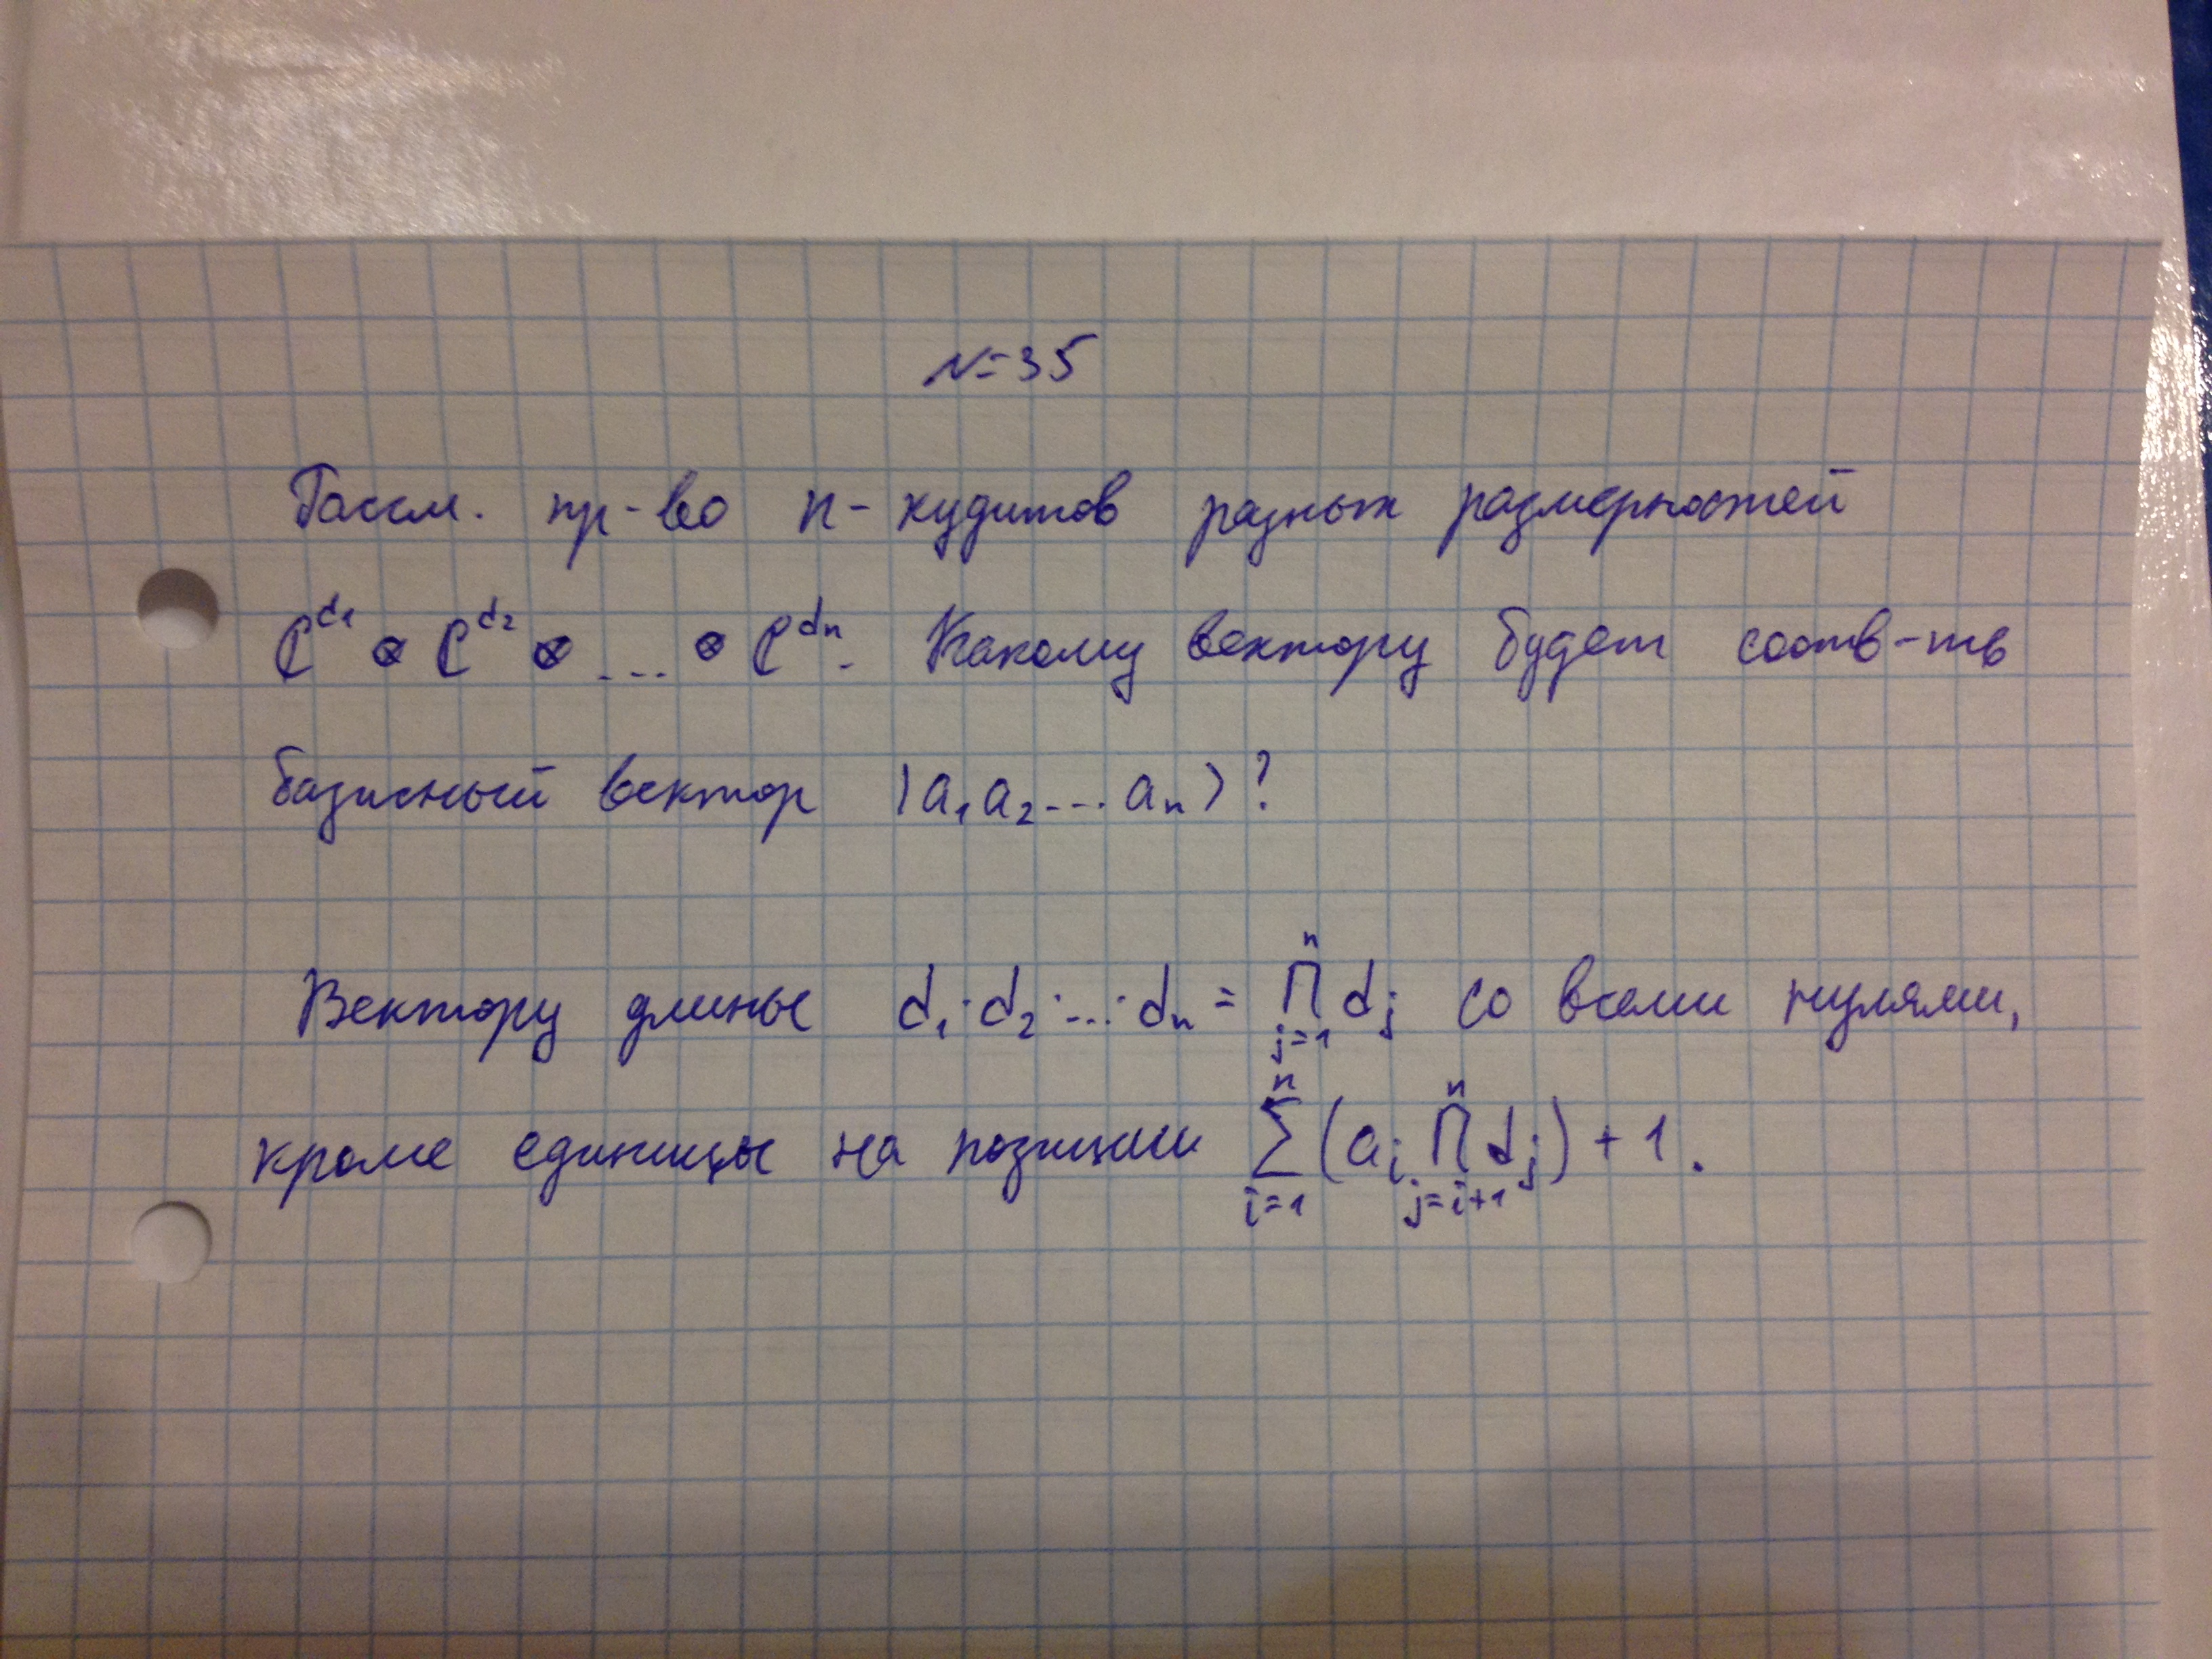 №35
Рассм. пр-во n-кудитов разных размерностей
ℂ^{d₁} ⊗ ℂ^{d₂} ⊗ ... ⊗ ℂ^{dₙ}. Какому вектору будет соотв-ть
базисный вектор |a₁a₂...aₙ⟩?
Вектору длины d₁·d₂·...·dₙ = ∏_{j=1}^{n} d_j со всеми нулями,
кроме единицы на позиции ∑_{i=1}^{n} (a_i ∏_{j=i+1}^{n} d_j) + 1.